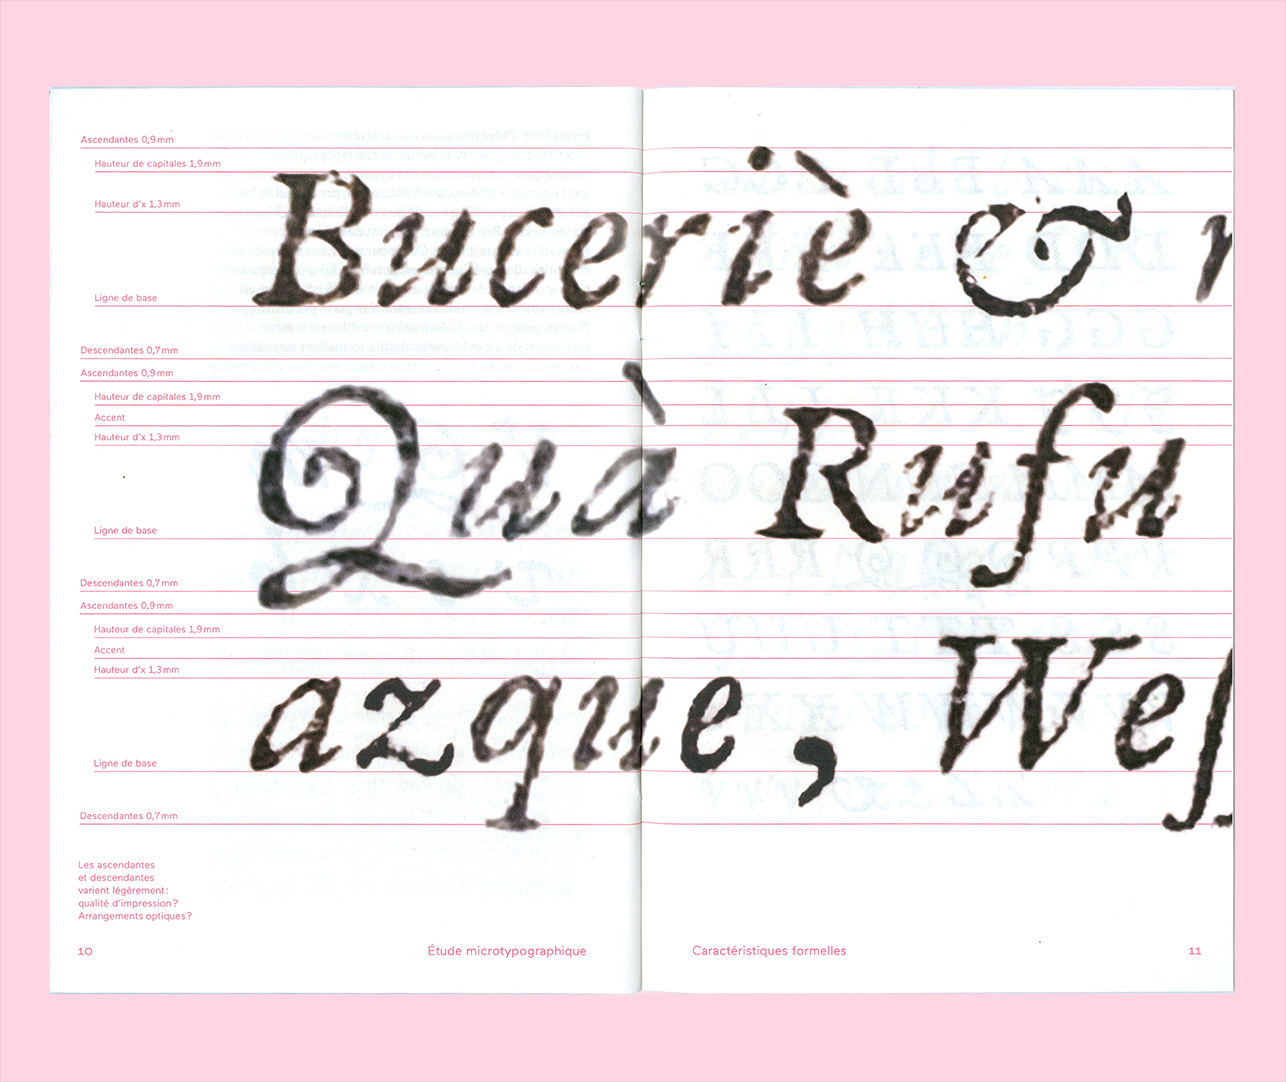 Ascendantes 0,9 mm
Hauteur de capitales 1,9 mm
Hauteur d'x 1,3 mm
Buceriè &
Ligne de base
Descendantes 0,7 mm
Ascendantes 0,9 mm
Hauteur de capitales 1,9 mm
Accent
Hauteur d'x 1,3 mm
Quà Rufu
Ligne de base
Descendantes 0,7 mm
Ascendantes 0,9 mm
Hauteur de capitales 1,9 mm
Accent
Hauteur d'x 1,3 mm
azque, We
Ligne de base
Descendantes 0,7 mm
Les ascendantes
et descendantes
varient légèrement :
qualité d'impression ?
Arrangements optiques ?
10 Étude microtypographique
Caractéristiques formelles 11